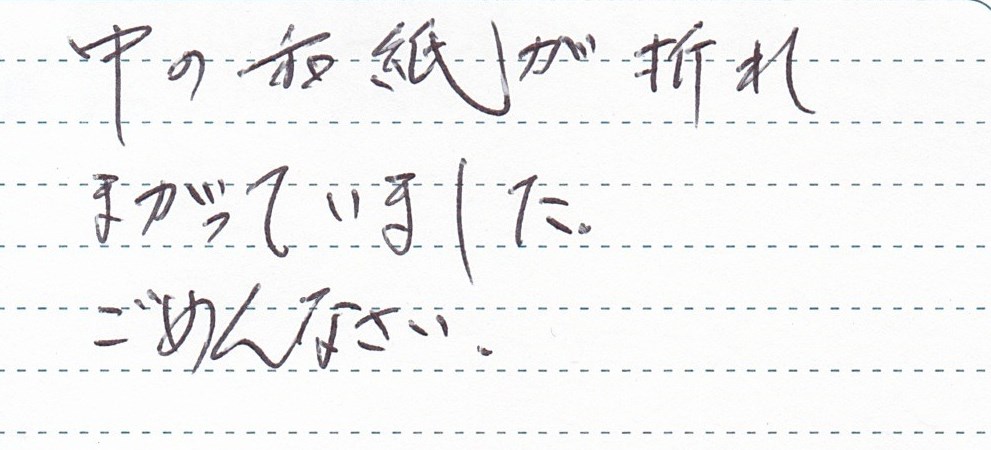 中の和紙が折れ
まがっていました.
ごめんなさい.